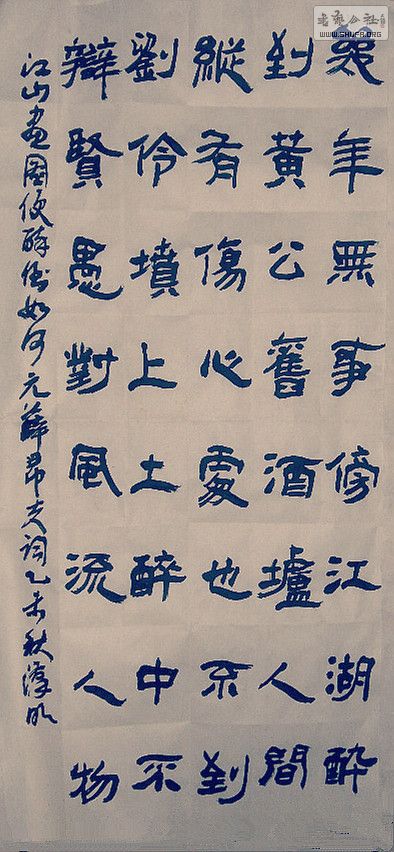 幾年無事傍江湖醉
到黃公舊酒壚人間
縱有傷心處也不到
劉伶墳上土醉中不
辯賢愚對風流人物
江山畫圖便醉倒如何元薛昂夫詞乙未秋
书艺公社
WWW.SHUFA.ORG